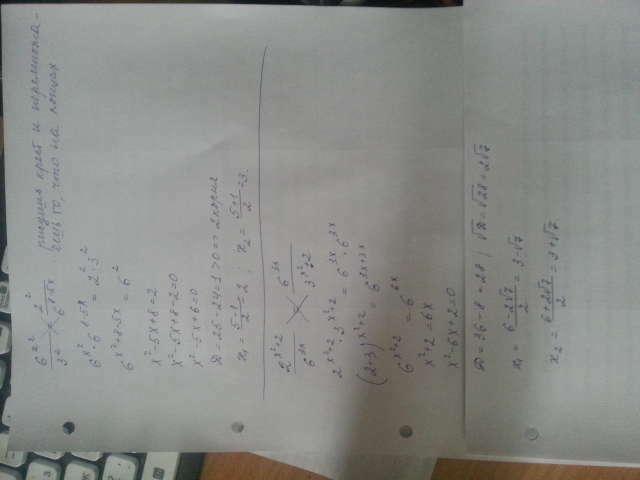 6^x² / 3² × 2² / 6^8-5x рисуешь крест и перемножа-
ешь то, что на концах
6^x² · 6^8-5x = 2² · 3²
6^x²+8-5x = 6²
x²-5x+8=2
x²-5x+8-2=0
x²-5x+6=0
D=25-24=1>0 => 2 корня
x₁ = (5-1)/2 = 2; x₂ = (5+1)/2 = 3.
2^x²+2 / 6^3x × 6^3x / 3^x²+2
2^x²+2 · 3^x²+2 = 6^3x · 6^3x
(2·3)^x²+2 = 6^3x+3x
6^x²+2 = 6^6x
x²+2=6x
x²-6x+2=0
D=36-8=28 | √D=√28=2√7
x₁ = (6-2√7)/2 = 3-√7
x₂ = (6+2√7)/2 = 3+√7